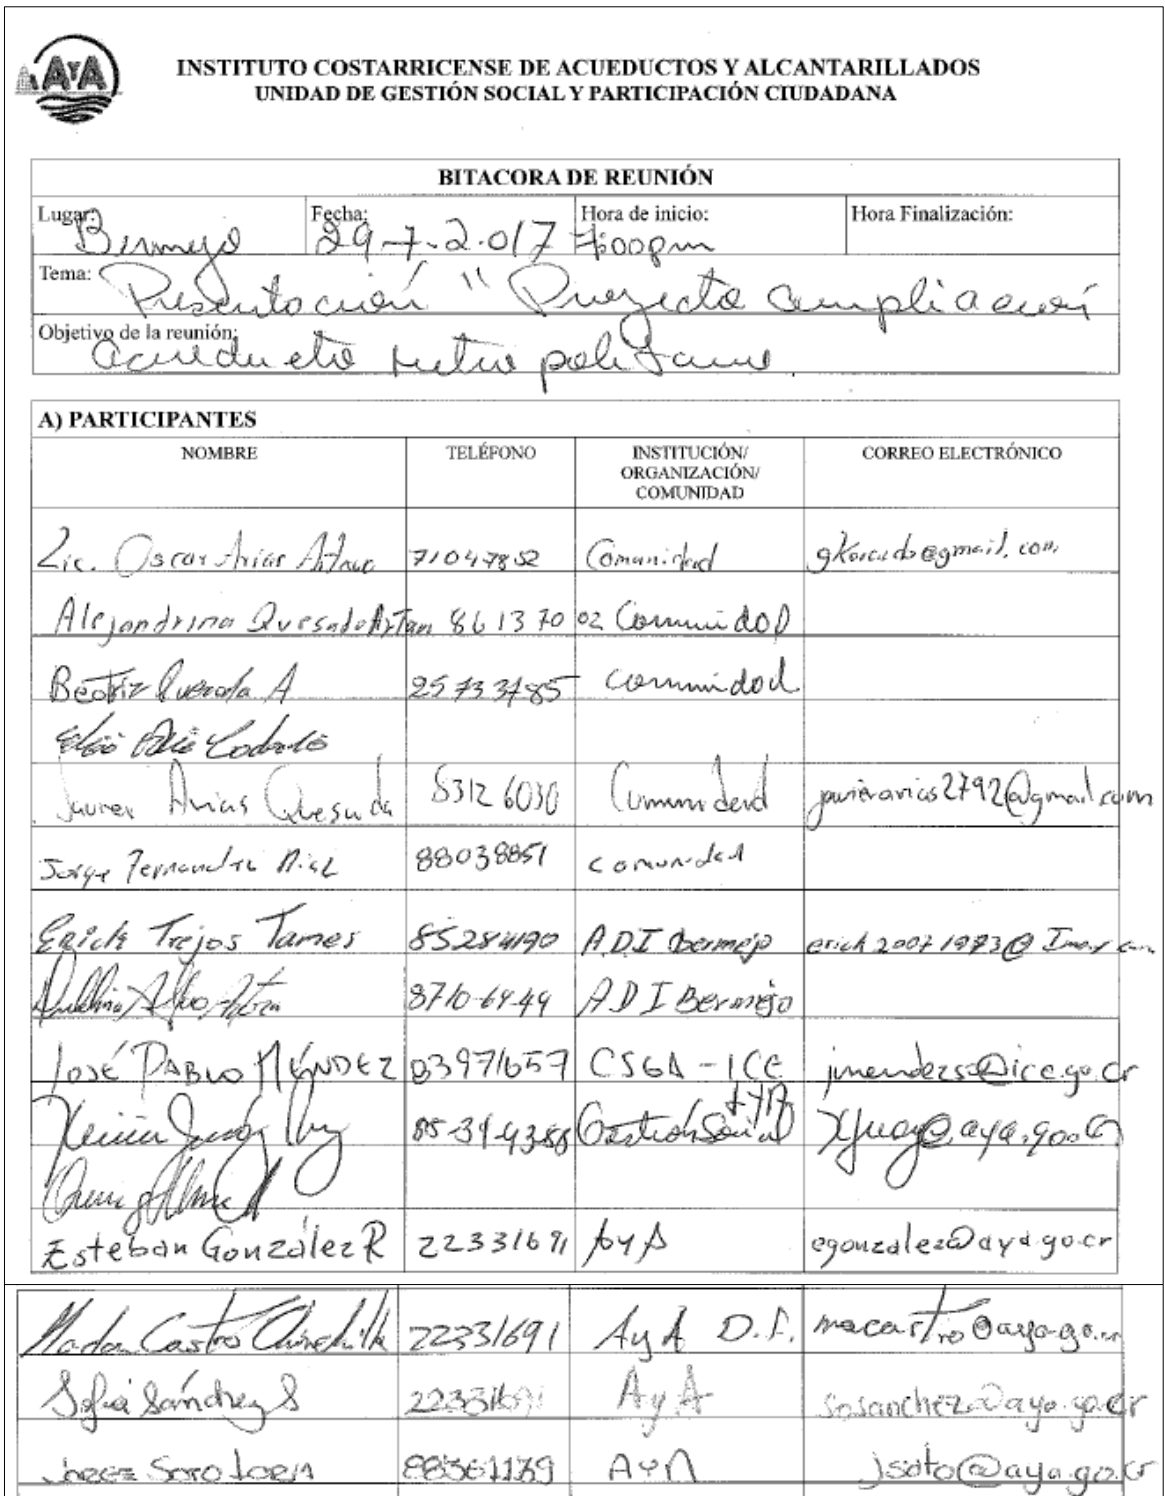 AyA
INSTITUTO COSTARRICENSE DE ACUEDUCTOS Y ALCANTARILLADOS
UNIDAD DE GESTIÓN SOCIAL Y PARTICIPACIÓN CIUDADANA
BITACORA DE REUNIÓN
Lugar: Bermejo Fecha: 29-7-2017 Hora de inicio: 7:00pm Hora Finalización:
Tema: Presentación " Proyecto ampliación
Objetivo de la reunión: acueducto metropolitano
A) PARTICIPANTES
NOMBRE TELÉFONO INSTITUCIÓN/ CORREO ELECTRÓNICO
ORGANIZACIÓN/
COMUNIDAD
Lic. Oscar Arias 71047852 Comunidad
Alejandrina Quesada 86137002 Comunidad
Beatriz Quesada A 25733785 comunidad
Javier Arias Quesada 83126030 Comunidad javierarias2792@gmail.com
Jorge Fernandez 88038851 comunidad
Erick Trejos Tames 85284190 A.D.I bermejo
8710-64-49 A D I Bermejo
JOSÉ PABLO MÉNDEZ 83971657 CSGA - ICE jmendezs@ice.go.cr
Gestión Social AyA
Esteban González R 22331691 AyA egonzalez@aya.go.cr
Castro 22331691 AyA macastro@aya.go.cr
Sofía Sánchez S 22331691 AyA sosanchez@aya.go.cr
88361139 AYA jsoto@aya.go.cr